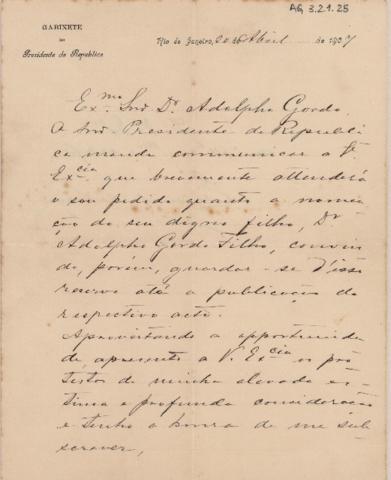 AG 3.2.1.25
GABINETE
DO
Presidente da Republica
Rio de Janeiro, 20 de Abril de 1907
Ex.mo Snr. Dr. Adolpho Gordo.
O Snr. Presidente da Republi
ca manda communicar a V.
Ex.cia que brevemente attenderá
o seu pedido quanto a nomea
ção de seu digno filho, Dr.
Adolpho Gordo Filho, convin
do, porém, guardar-se d'isso
reserva até a publicação do
respectivo acto.
Aproveitando a opportunida
de apresento a V. Ex.cia os pro
testos de minha elevada es
tima e profunda consideração
e tenho a honra de me sub
screver,